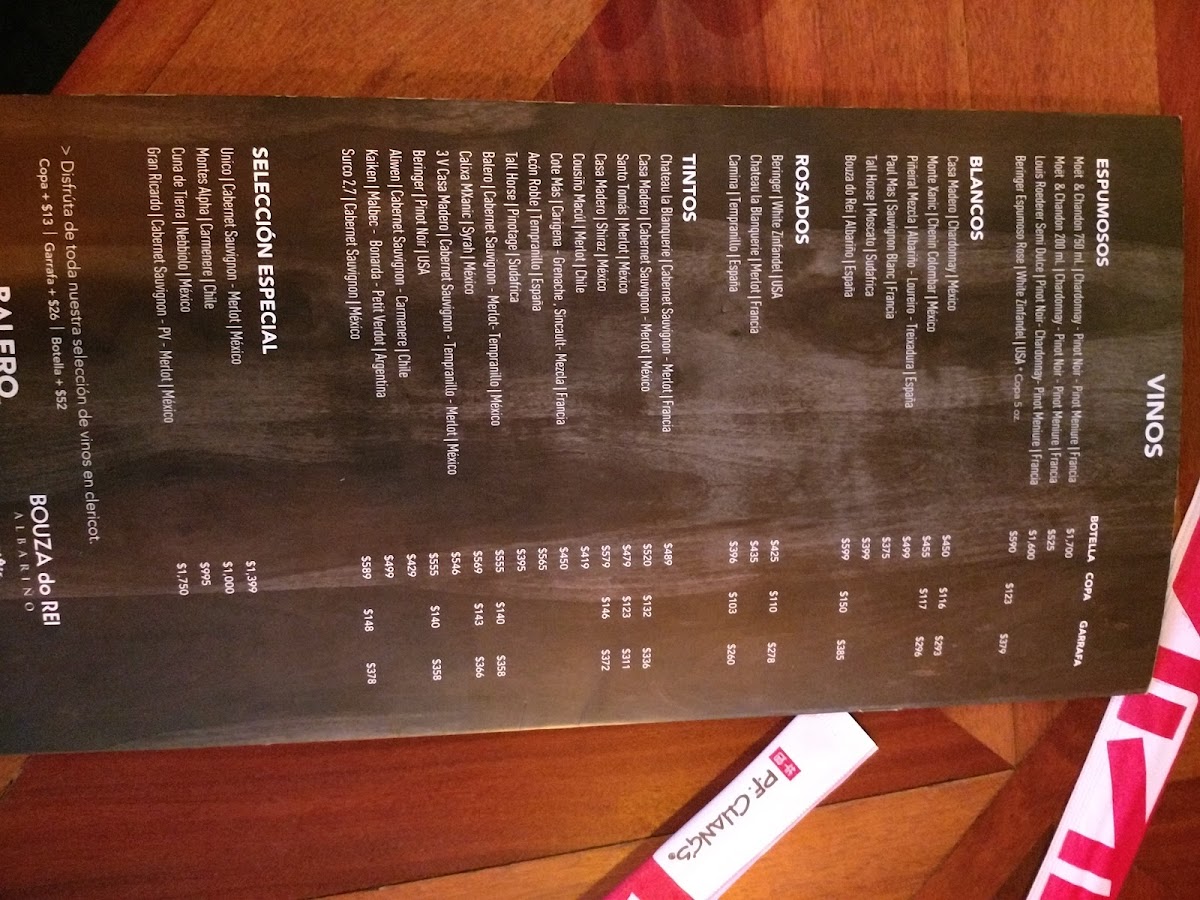 VINOS
BOTELLA COPA GARRAFA
ESPUMOSOS
Moët & Chandon 750 mL | Chardonnay - Pinot Noir - Pinot Meniure | Francia $1,700
Moët & Chandon 200 mL | Chardonnay - Pinot Noir - Pinot Meniure | Francia $525
Louis Roederer Semi Dulce | Pinot Noir - Chardonnay- Pinot Meniure | Francia $1,600
Beringer Espumoso Rose | White Zinfandel | USA • Copa 5 oz. $590 $123 $379
BLANCOS
Casa Madero | Chardonnay | México $450 $116 $293
Monte Xanic | Chenin Colombar | México $455 $117 $296
Piñeiral Mezcla | Albariño - Loureiro - Teixadura | España $499
Paul Mas | Sauvignon Blanc | Francia $375
Tall Horse | Moscato | Sudáfrica $399
Bouza do Rei | Albariño | España $599 $150 $385
ROSADOS
Beringer | White Zinfandel | USA $425 $110 $278
Chateau la Blanquerie | Merlot | Francia $435
Camina | Tempranillo | España $396 $103 $260
TINTOS
Chateau la Blanquerie | Cabernet Sauvignon - Merlot | Francia $489
Casa Madero | Cabernet Sauvignon - Merlot | México $520 $132 $336
Santo Tomás | Merlot | México $479 $123 $311
Casa Madero | Shiraz | México $579 $146 $372
Cousiño Macúl | Merlot | Chile $419
Cote Mas | Carigena - Grenache , Sincault- Mezcla | Francia $450
Acón Roble | Tempranillo | España $565
Tall Horse | Pinotage | Sudáfrica $395
Balero | Cabernet Sauvignon - Merlot- Tempranillo | México $555 $140 $358
Calixa MXanic | Syrah | México $569 $143 $366
3 V Casa Madero | Cabernet Sauvignon - Tempranillo - Merlot | México $546
Beringer | Pinot Noir | USA $555 $140 $358
Aliwen | Cabernet Sauvignon - Carmenere | Chile $429
Kaiken | Malbec - Bonarda - Petit Verdot | Argentina $499
Surco 2.7 | Cabernet Sauvignon | México $589 $148 $378
SELECCIÓN ESPECIAL
Unico | Cabernet Sauvignon - Merlot | México $1,399
Montes Alpha | Carmenere | Chile $1,000
Cuna de Tierra | Nebbiolo | México $995
Gran Ricardo | Cabernet Sauvignon - PV - Merlot | México $1,750
> Disfruta de toda nuestra selección de vinos en clericot.
Copa + $13 | Garrafa + $26 | Botella + $52
BALERO
BOUZA do REI
ALBARIÑO
P.F. CHANG'S